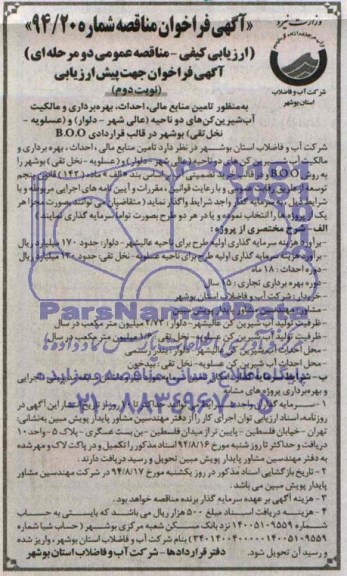 وزارت نیرو
شرکت آب و فاضلاب
استان بوشهر
«آگهی فراخوان مناقصه شماره ۹۴/۲۰»
(ارزیابی کیفی - مناقصه عمومی دو مرحله ای)
آگهی فراخوان جهت پیش ارزیابی
(نوبت دوم)
به‌منظور تامین منابع مالی، احداث، بهره‌برداری و مالکیت
آب‌شیرین‌کن‌های دو ناحیه (عالی شهر - دلوار) و (عسلویه -
نخل تقی) بوشهر در قالب قراردادی B.O.O
شرکت آب و فاضلاب استان بوشهر در نظر دارد تامین منابع مالی، احداث، بهره برداری و
مالکیت آب شیرین کن های دو ناحیه (عالی شهر - دلوار) و (عسلویه - نخل تقی) بوشهر را
به روش B.O.O و در قالب خرید تضمینی آب بر اساس بند «الف» ماده (۱۴۲) قانون پنجم
توسعه از طریق رقابت عمومی و با رعایت قوانین، مقررات و آیین نامه های اجرایی مربوطه و با
شرایط ذیل، به سرمایه گذار واجد شرایط واگذار نماید (متقاضیان می توانند بصورت مجزا هر
یک از پروژه ها را انتخاب نموده و یا در هر دو طرح بصورت تواما سرمایه گذاری نمایند)
الف - شرح مختصری از پروژه:
- برآورد هزینه سرمایه گذاری اولیه طرح برای ناحیه عالیشهر - دلوار: حدود ۱۷۰ میلیارد ریال
- برآورد هزینه سرمایه گذاری اولیه طرح برای ناحیه عسلویه - نخل تقی: حدود ۱۳۰ میلیارد ریال
- دوره احداث: ۱۸ ماه
- دوره بهره برداری تجاری: ۱۵ سال
- خریدار: شرکت آب و فاضلاب استان بوشهر
- مشاور: مهندسین مشاور پایدار پویش مبین
- ظرفیت تولید آب شیرین کن عالیشهر - دلوار: ۲/۷۳ میلیون متر مکعب در سال
- محل احداث آب شیرین کن عالیشهر - دلوار: بندر رستمی
- محل احداث آب شیرین کن عسلویه - نخل تقی: بیدخون
روزنامه اسناد ارزیابی توان اجرای کار را از دفتر مهندسین مشاور پایدار پویش مبین به‌نشانی:
تهران - خیابان فلسطین - پایین تر از میدان فلسطین - بن بست عسگری - پلاک ۵ - واحد ۱۰
دریافت و حداکثر تا روز شنبه مورخ ۹۴/۸/۱۶ اسناد مذکور را تکمیل و در پاکت لاک و مهرشده
به دفتر مهندسین مشاور پایدار پویش مبین تحویل و رسید دریافت دارند.
۲ - تاریخ بازگشایی اسناد مذکور در روز یکشنبه مورخ ۹۴/۸/۱۷ در شرکت مهندسین مشاور
پایدار پویش مبین می باشد.
۳ - هزینه آگهی بر عهده سرمایه گذار برنده مناقصه خواهد بود.
۴ - هزینه دریافت اسناد مبلغ ۵۰۰ هزار ریال می باشد که بایستی به حساب
شماره ۱۴۰۰۵۱۰۹۵۵۹ نزد بانک مسکن شعبه مرکزی بوشهر (حساب شبا شماره
بنام شرکت آب و فاضلاب استان بوشهر، واریز شده
و رسید آن تحویل شود.
دفتر قراردادها - شرکت آب و فاضلاب استان بوشهر
پایگاه اطلاع رسانی مناقصه و مزایده
۰۲۱-۸۸۳۴۹۶۷۰-۵